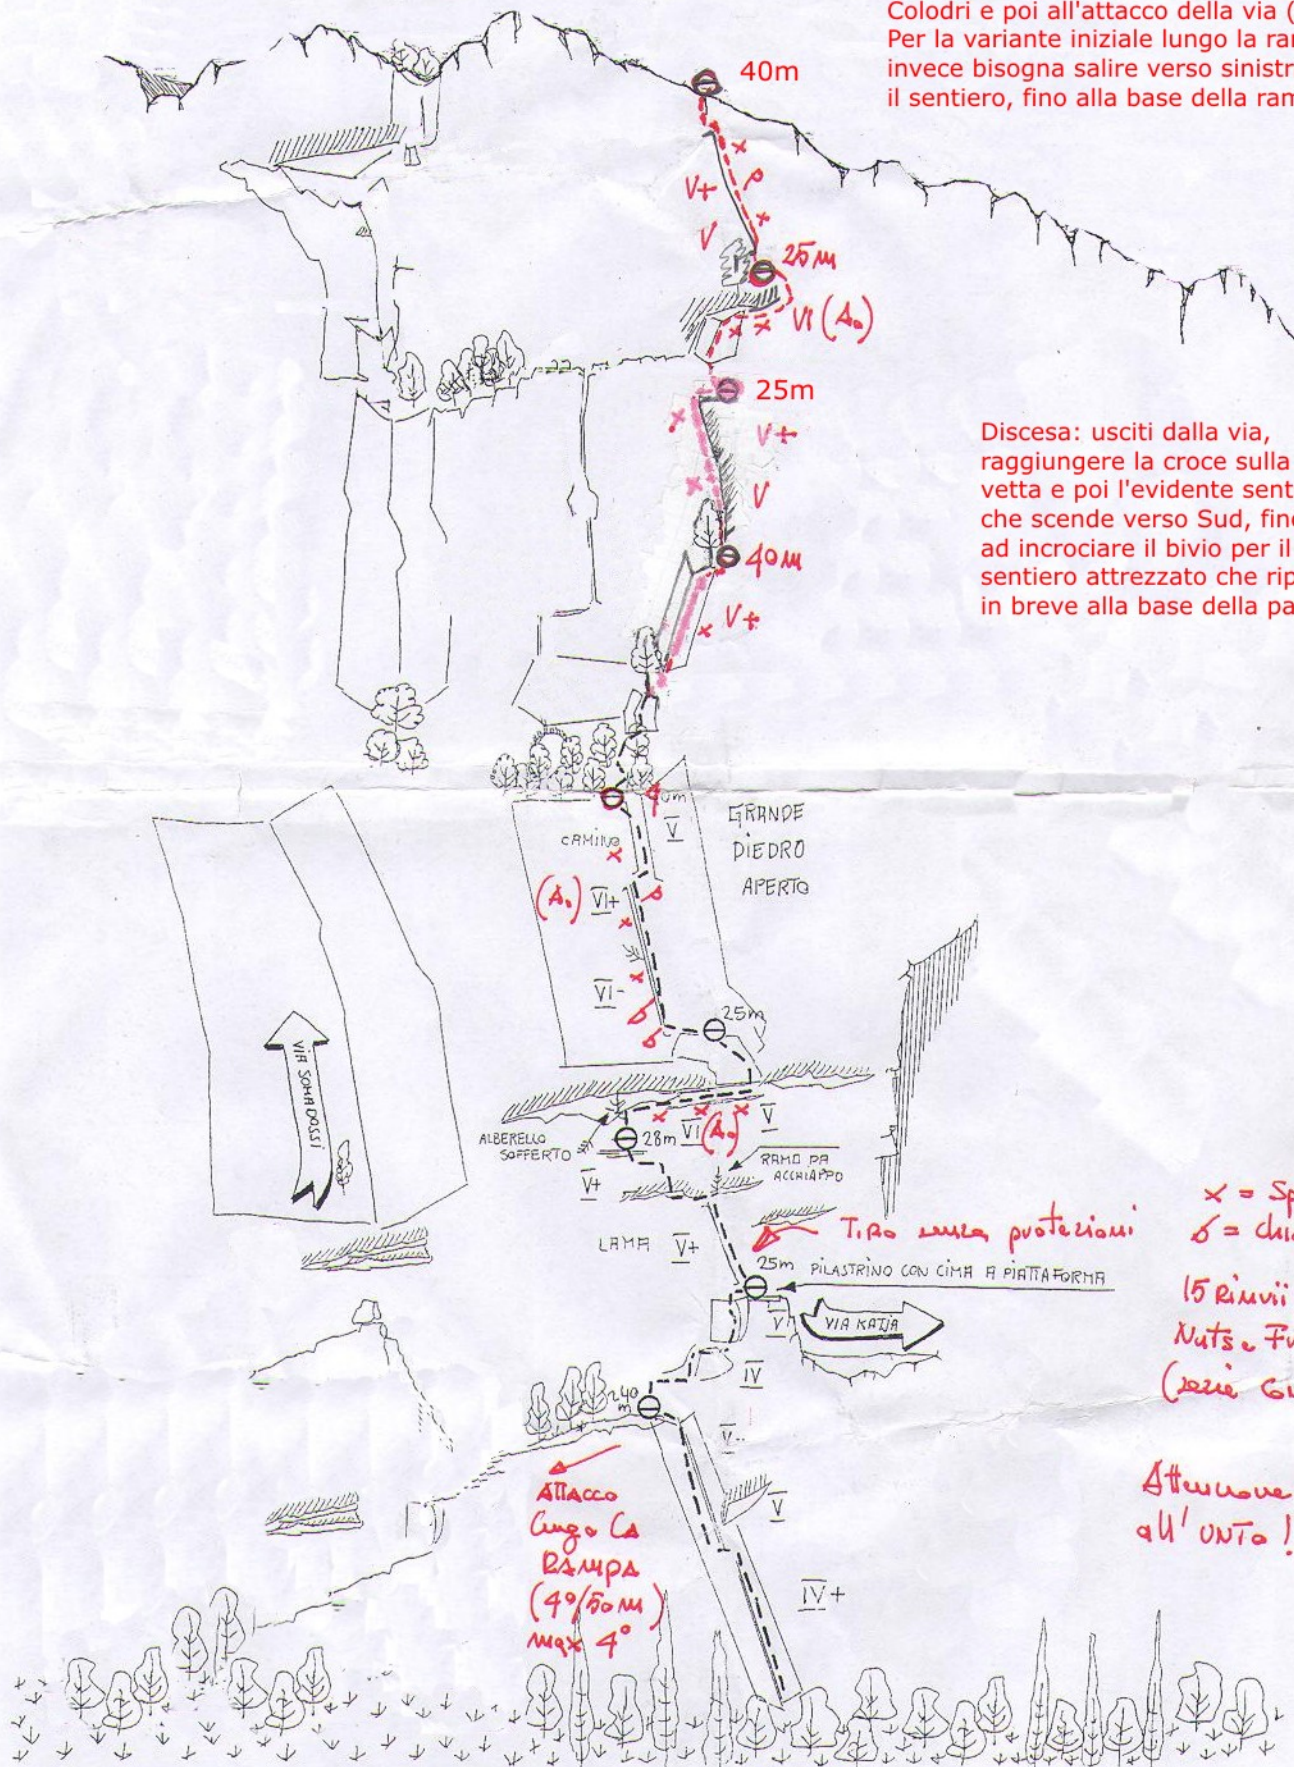 Colodri e poi all'attacco della via (
Per la variante iniziale lungo la ran
invece bisogna salire verso sinistr
il sentiero, fino alla base della ram
40m
V+
V
25m
VI (A0)
25m
V+
V
40m
V+
Discesa: usciti dalla via,
raggiungere la croce sulla
vetta e poi l'evidente sent
che scende verso Sud, fino
ad incrociare il bivio per il
sentiero attrezzato che rip
in breve alla base della pa
40m
V
CAMINO
GRANDE
DIEDRO
APERTO
(A0) VI+
VI-
25m
VIA SOMADOSSI
ALBERELLO
SOFFERTO
28m VI (A0) V
V+
RAMO DA
ACCHIAPPO
LAMA V+
TIRO senza protezioni
25m PILASTRINO CON CIMA A PIATTAFORMA
V
VIA KATJA
IV
40
m
V-
V
IV+
ATTACCO
lungo LA
RAMPA
(4°/50m)
max 4°
x = Sp
= chi
15 Rinvii
Nuts e Fr
(serie co
Attenzione
all' UNTO!